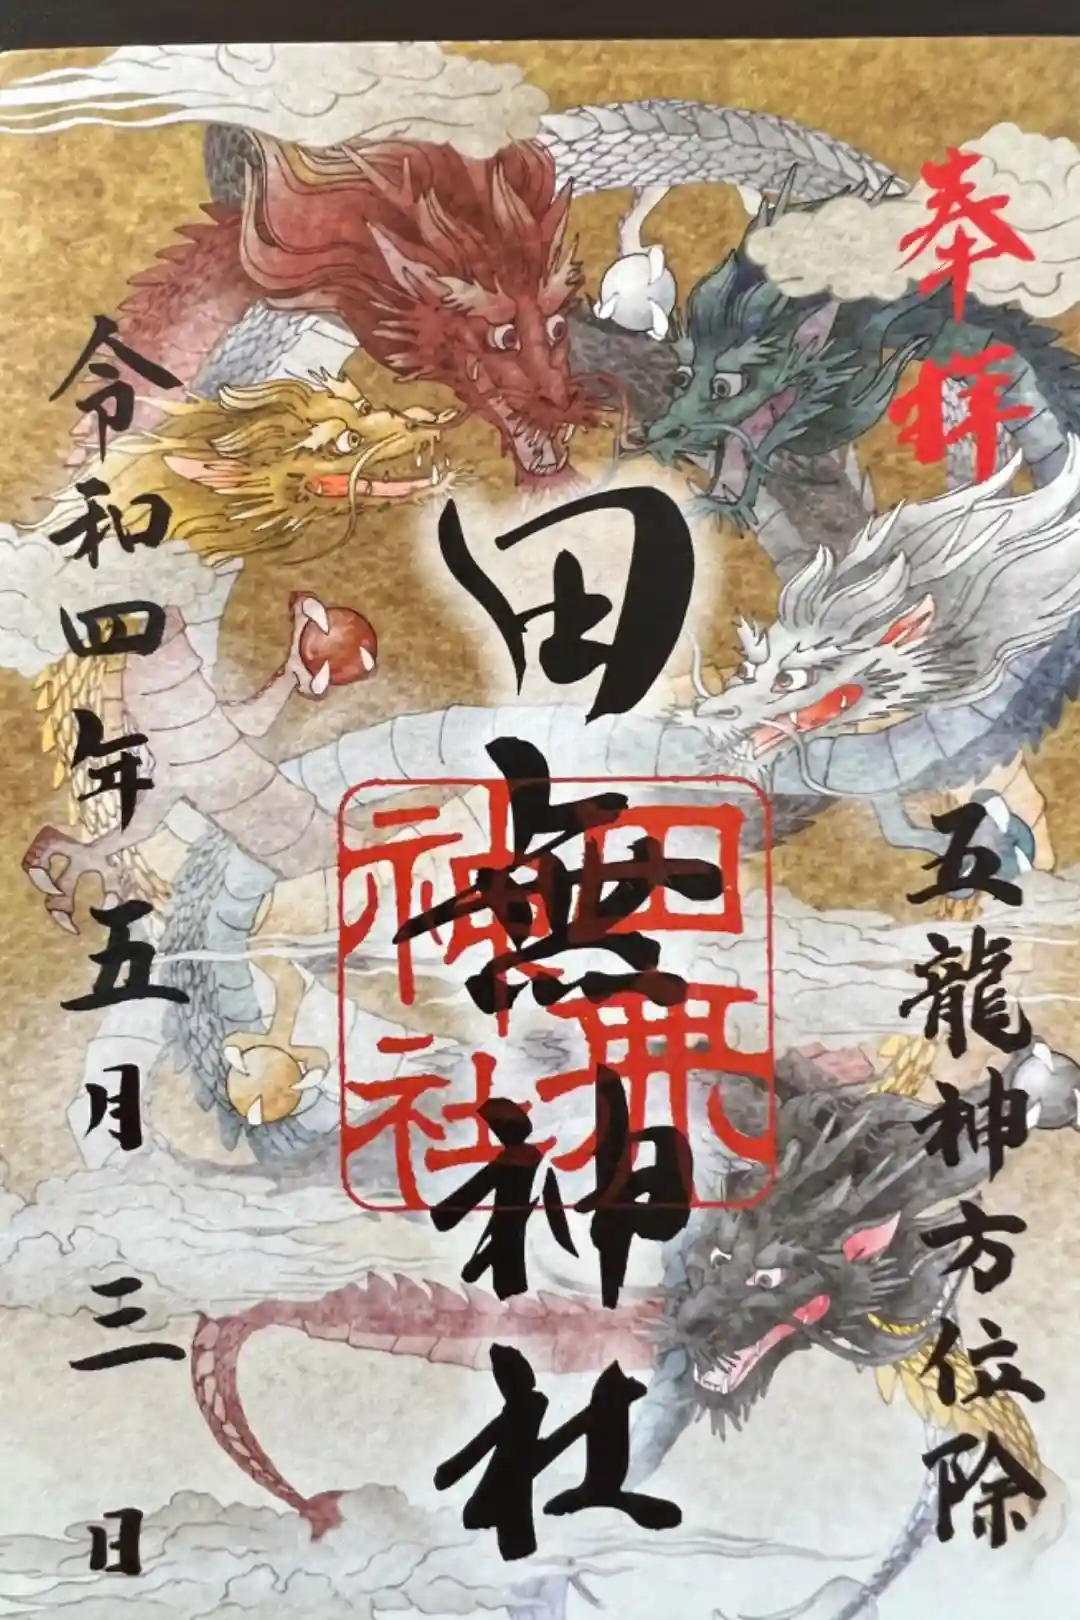 奉拝
五龍神方位除
田無神社
田無
神社
令和四年五月三日